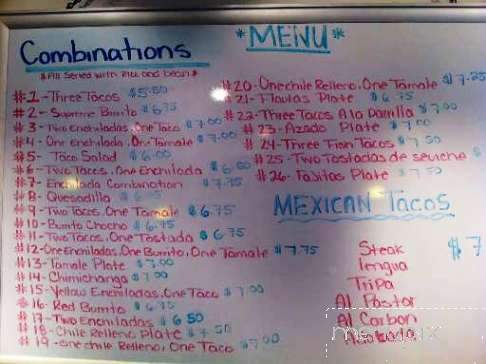 *MENU*
Combinations
*All Served with rice and beans*
#1-Three Tacos $5.50
#2-Supreme Burrito $6.75
#3-Two Enchiladas, One Taco $7.00
#4-One Enchilada, One Tamale $7.00
#5-Taco Salad $6.00
#6-Two Tacos, One Enchilada $6.00
#7-Enchilada Combination $7.75
#8-Quesadilla
#9-Two Tacos, One Tamale $6.75
#10-Burrito Chocho $6.75
#11-Two Tacos, One Tostada $6.75
#12-One Enchilada, One Burrito, One Tamale $7.75
#13-Tamale Plate $7.00
#14-Chimichanga $7.00
#15-Yellow Enchiladas, One Taco $7.00
#16-Red Burrito $6.75
#17-Two Enchiladas $6.50
#18-Chile Relleno Plate $7.50
#19-One chile Relleno, One Taco $7.00
#20-One chile Relleno, One Tamale $7.25
#21-Flautas Plate $6.75
#22-Three Tacos A la Parrilla $7.00
#23-Asado Plate $7.00
#24-Three Fish Tacos $7.50
#25-Two Tostadas de seviche $
#26-Fajitas Plate $7.50
MEXICAN Tacos
Steak $7
lengua
Tripa
Al Pastor
Al Carbon